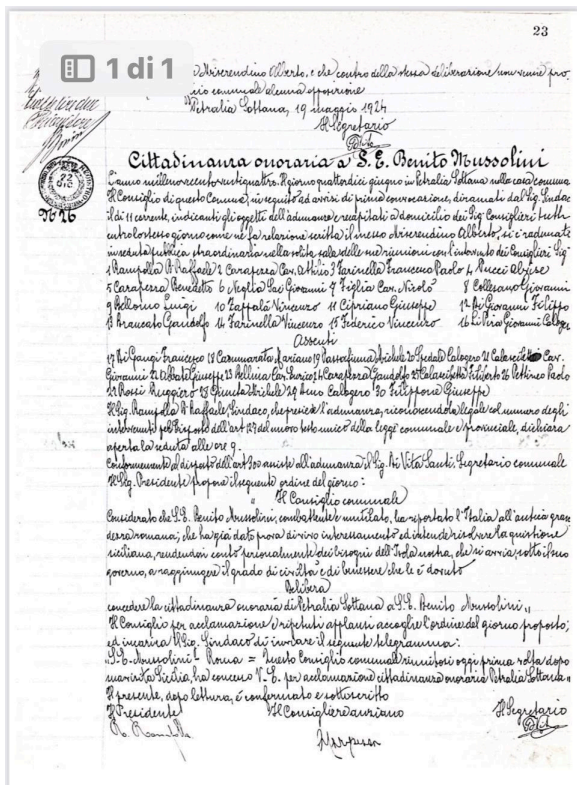 23
1 di 1
Miserendino Alberto, e che contro della stessa deliberazione non venne pro
comunale alcuna opposizione
Petralia Sottana, 19 maggio 1924
Il Segretario
Cittadinanza onoraria a S. E. Benito Mussolini
L'anno millenovecentoventiquattro. Il giorno quattordici giugno in Petralia Sottana nella casa comuna
Il Consiglio di questo Comune, in seguito ad avvisi di prima convocazione, diramati dal Sig. Sindac
il dì 11 corrente, indicanti gli oggetti dell'adunanza e recapitati a domicilio dei Sig. Consiglieri tutti
entro lo stesso giorno come ne fa relazione scritta il messo Miserendino Alberto, si è radunato
in seduta pubblica straordinaria nella solita sala delle sue riunioni con l'intervento dei Consiglieri Sig
N. 26
1 Rampolla R. Raffaele 2 Carapezza Cav. Attirio 3 Farinella Francesco Paolo 4 Pucci Aloise
5 Carapezza Benedetto 6 Neglia Gaetano 7 Figlia Cav. Nicolò 8 Collesano Giovanni
9 Bellomo Luigi 10 Zaffali Vincenzo 11 Cipriano Giuseppe 12 Di Giovanni Filippo
13 Brancato Gandolfo 14 Farinella Vincenzo 15 Federico Vincenzo 16 Li Pira Giovanni Caloge
Assenti
17 Di Gangi Francesco 18 Cammarata Mariano 19 Michele 20 Spedale Calogero 21 Calascibetta Cav.
Giovanni 22 Albata Giuseppe 23 Cav. Enrico 24 Carapezza Gandolfo 25 Calascibetta Filiberto 26 Pettineo Paolo
27 Rossi Ruggiero 28 Giunta Michele 29 Calogero 30 Filippone Giuseppe
Il Sig. Rampolla R. Raffaele Sindaco, che presiede l'adunanza, riconoscendola legale col numero degli
intervenuti pel disposto dell'art. 127 del nuovo testo unico della legge comunale e provinciale, dichiara
aperta la seduta alle ore 9.
Conformemente al disposto dell'art. 300 assiste all'adunanza il Sig. Di Vita Santi. Segretario comunale
Il Sig. Presidente propone il seguente ordine del giorno:
"Il Consiglio comunale
Considerato che S. E. Benito Mussolini, combattente e mutilato, ha riportato l'Italia all'antica gran
dezza romana; che ha già dato prova di vivo interessamento ed intende risolvere la quistione
siciliana, rendendosi conto personalmente dei bisogni dell'Isola nostra, che si avvia, sotto il suo
governo, a raggiungere il grado di civiltà e di benessere che le è dovuto
Delibera
concedere la cittadinanza onoraria di Petralia Sottana a S. E. Benito Mussolini"
Il Consiglio per acclamazione e ripetuti applausi accoglie l'ordine del giorno proposto;
ed incarica il Sig. Sindaco di inviare il seguente telegramma:
"S. E. Mussolini - Roma = Questo Consiglio comunale riunitosi oggi prima volta dopo
sua visita Sicilia, ha concesso V. E. per acclamazione cittadinanza onoraria Petralia Sottana"
Il presente, dopo lettura, è confermato e sottoscritto
Il Presidente Il Consigliere anziano Il Segretario
R. Rampolla